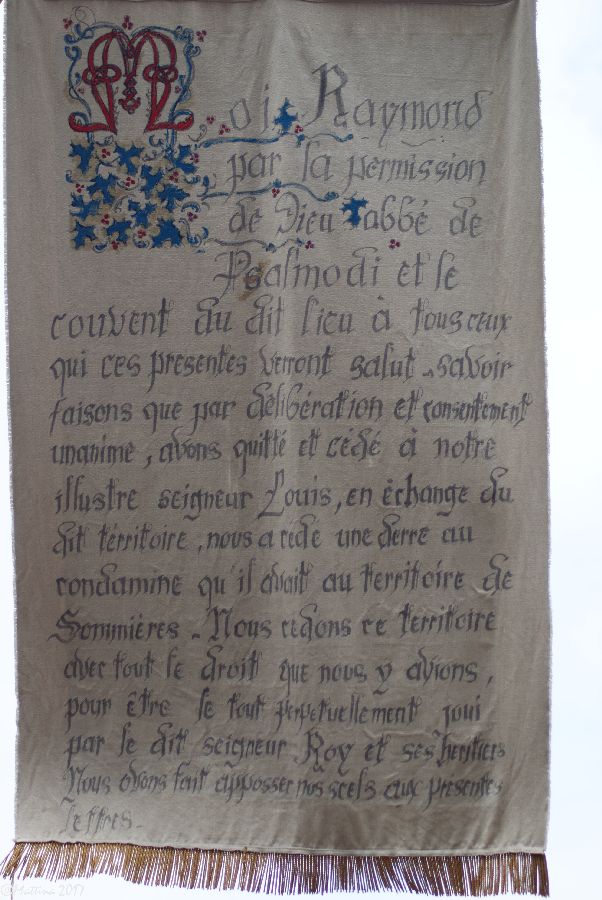 Moi Raymond
par la permission
de Dieu abbé de
Psalmodi et le
couvent du dit lieu à tous ceux
qui ces presentes verront salut. savoir
faisons que par délibération et consentement
unanime, avons quitté et cédé à notre
illustre seigneur Louis, en échange du
dit térritoire, nous a cédé une derre au
condamine qu'il avait au territoire de
Sommières - Nous cedons ce territoire
avec tout le droit que nous y avions,
pour être le tout perpetuellement joui
par le dit seigneur Roy et ses heritiers
Nous avons fait apposser nos scels aux presentes
lettres.
©Mattina 2017